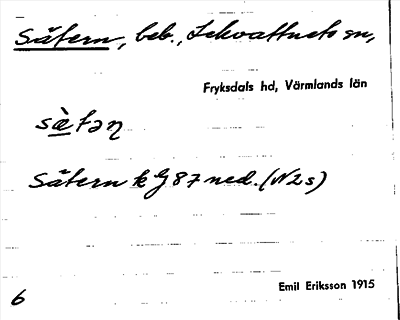 Sätern, beb., Lekvattnets sn,
Fryksdals hd, Värmlands län
sæ̀təɳ
Sätern k G 87 ned. (N2s)
Emil Eriksson 1915
6